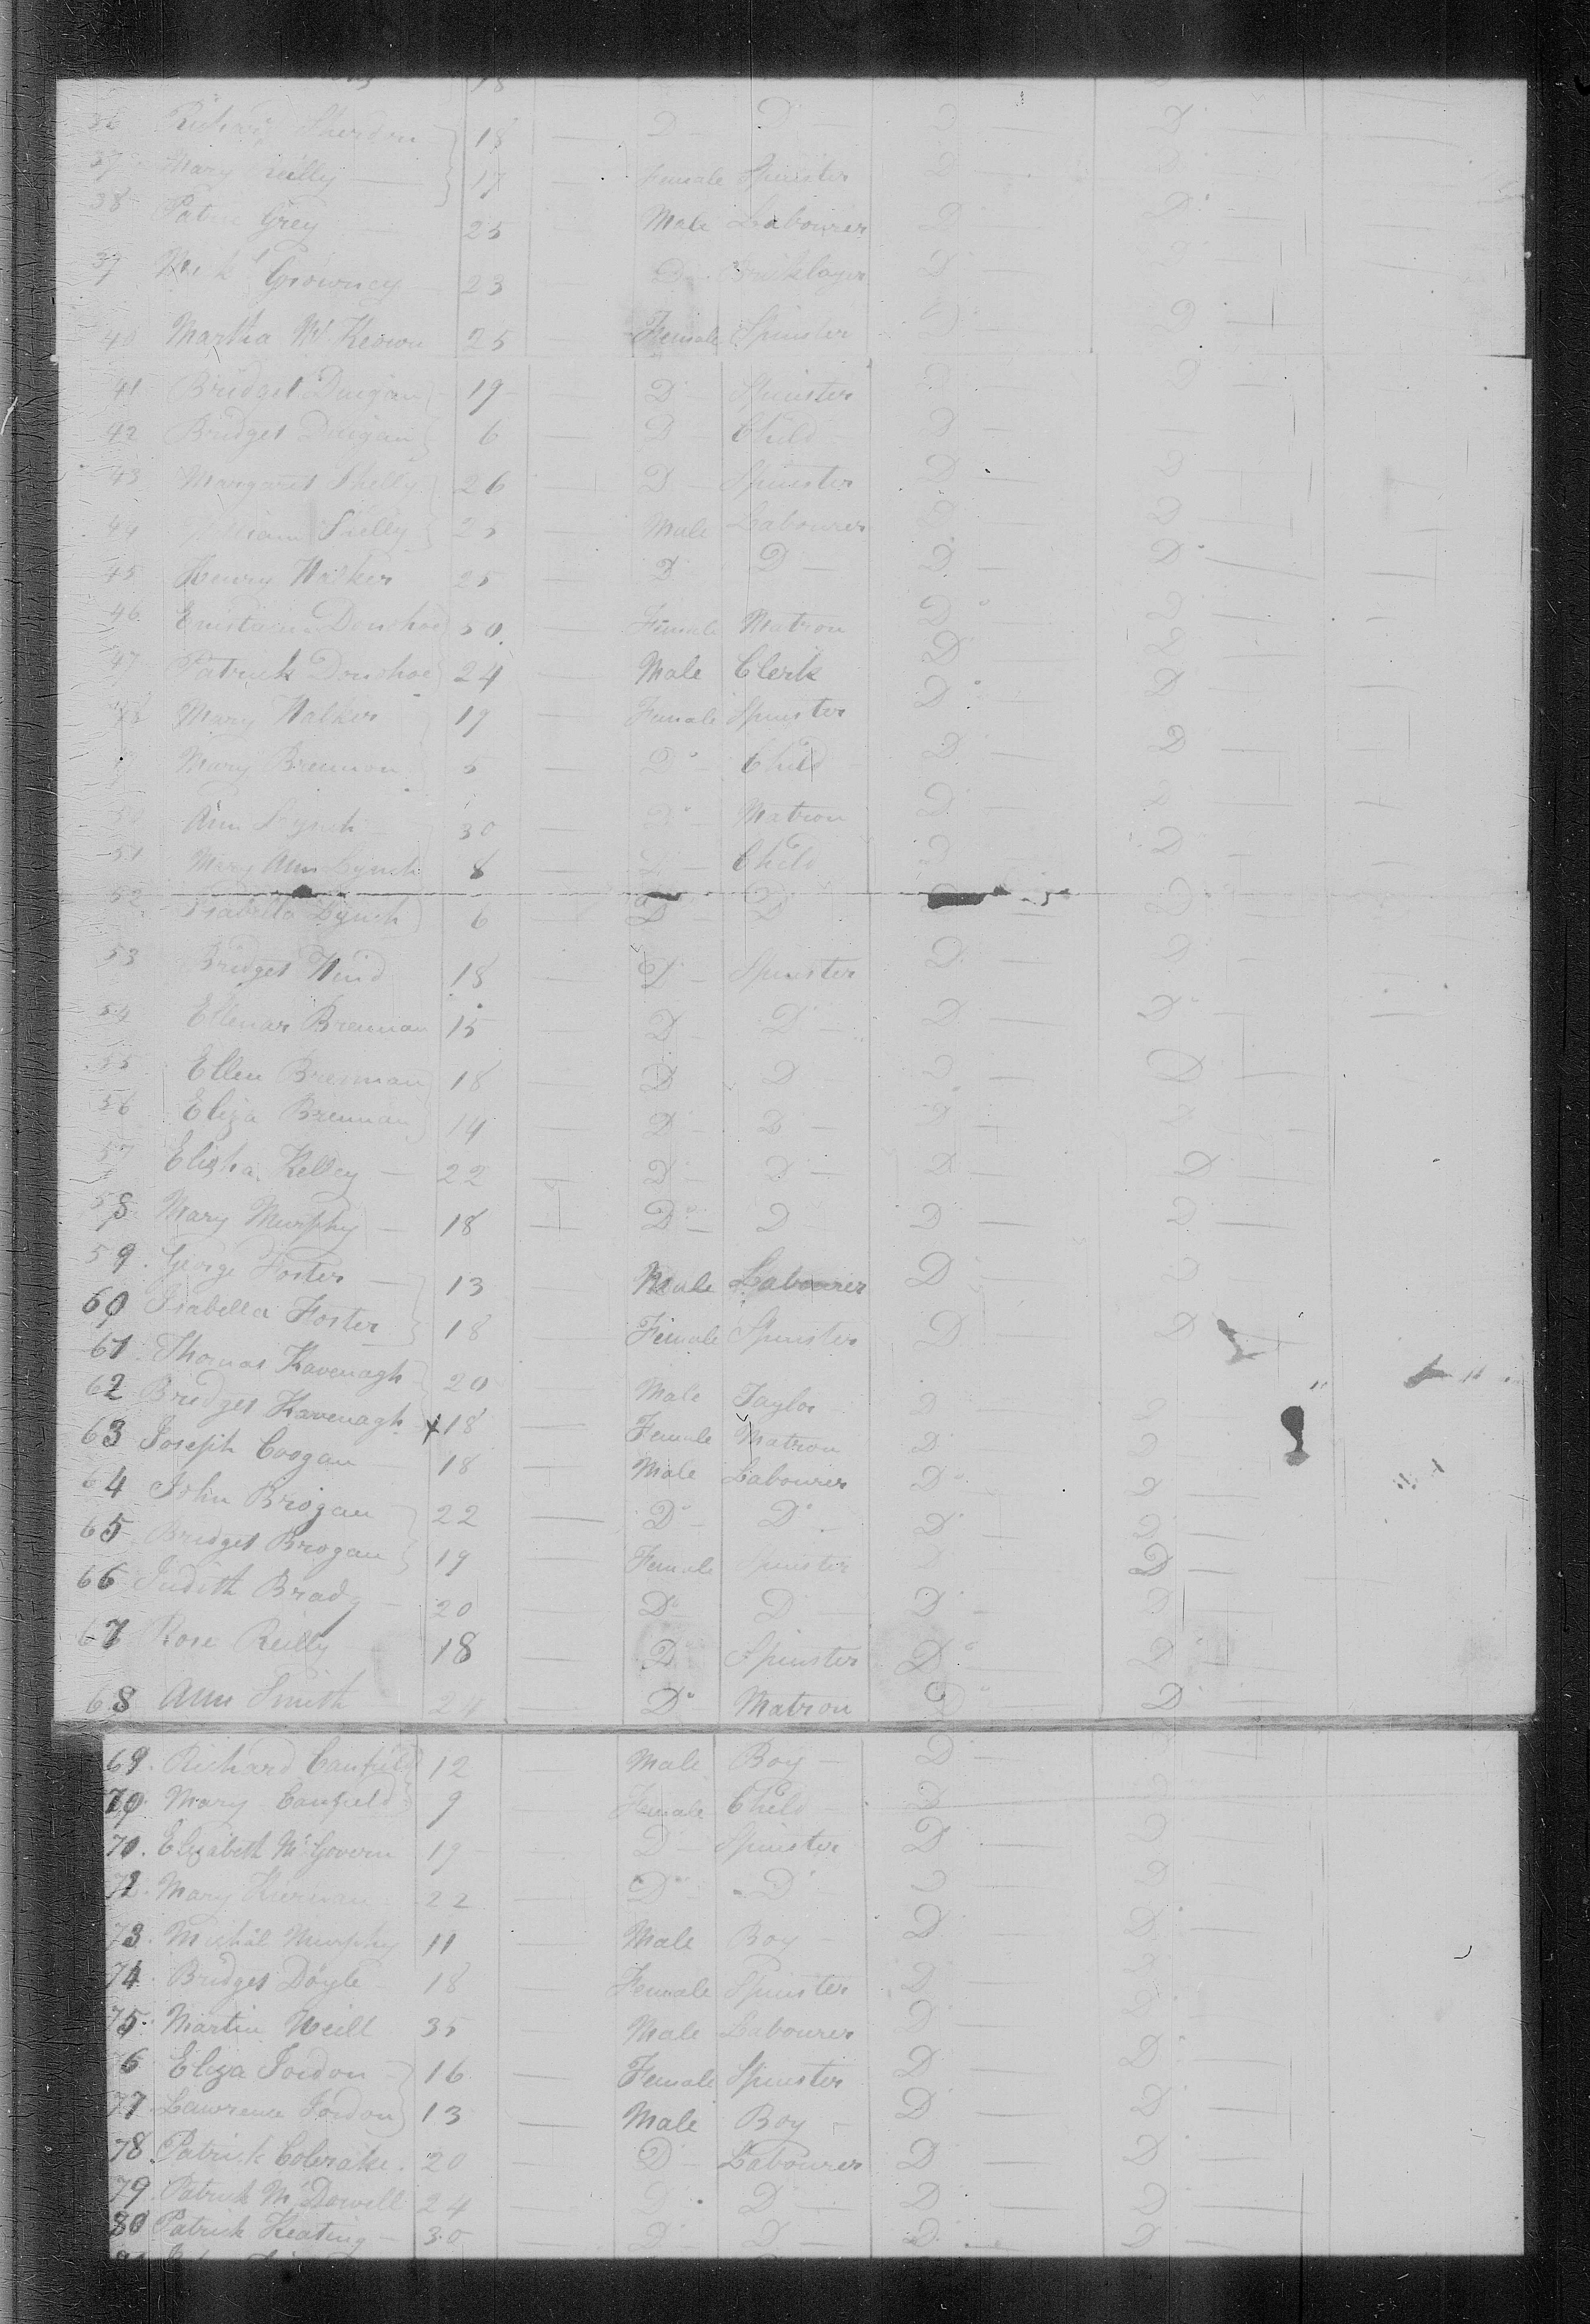 36 Richard Sheridan 18 — D — D D — D —
37 Mary Reilly — 17 — Female Spinster D —
38 Grey 25 — Male Labourer D — D —
39 Growney 23 D Bricklayer D
40 Martha Mc Keown 25 — Female Spinster D D —
41 Bridget Duigan 19 — D — Spinster D D —
42 Bridget Duigan 6 — D — Child D — —
43 Margaret Shelly 26 — D — Spinster D D —
44 William Shelly 25 — Male Labourer D D —
45 Henry Walker 25 — D D — D — D —
46 Donohoe 50 — Female Matron D D —
47 Patrick Donohoe 24 — Male Clerk D D —
48 Mary Walker 19 — Female Spinster D D —
49 Mary Brennon 5 — D — Child D — D —
50 Ann Lynch 30 — D — Matron D — D —
51 Mary Ann Lynch 8 — D — Child D D —
52 Isabella Lynch 6 — D D — D —
53 Bridget 18 — D — Spinster D — D —
54 Ellenar Brennan 15 — D — D — D — D —
55 Ellen Brennan 18 — D D D — D —
56 Eliza Brennan 14 — D — D — D — D —
57 Kelley — 22 — D — D — D — D
58 Mary Murphy — 18 — D — D D — D —
59. George Foster — 13 — Male Labourer D D
60 Isabella Foster 18 — Female Spinster D D —
61. Thomas Kavenagh 20 — Male Taylor D
62 Bridget Kavenagh x 18 — Female Matron D D —
63 Joseph Coogan — 18 — Male Labourer D — D —
64 John Brogan 22 — D — D — D — D —
65 Bridget Brogan 19 — Female Spinster D — D —
66 Judith Brady — 20 — D — D — D — D
67 Rose Reilly 18 — D Spinster D — D —
68 Ann Smith 24 — D Matron D — D —
69. Richard Canfield 12 — Male Boy D — D
70. Mary Canfield 9 — Female Child D — D
70. Elizabeth Mc Govern 19 — D — Spinster D — D
72. Mary Kiernan 22 — D D D — D —
73. Michal Murphy 11 — Male Boy D — D —
74. Bridget Doyle 18 — Female Spinster D — D —
75. Martin Neill 35 — Male Labourer D — D —
76 Eliza Jordon 16 — Female Spinster D — D —
77 Lawrence Jordon 13 — Male Boy — D — D —
78. Patrick 20 — D — Labourer D — D —
79. Patrick Mc Dowell 24 — D D — D — D —
80 Patrick Keating — 30 — D — D — D — D —